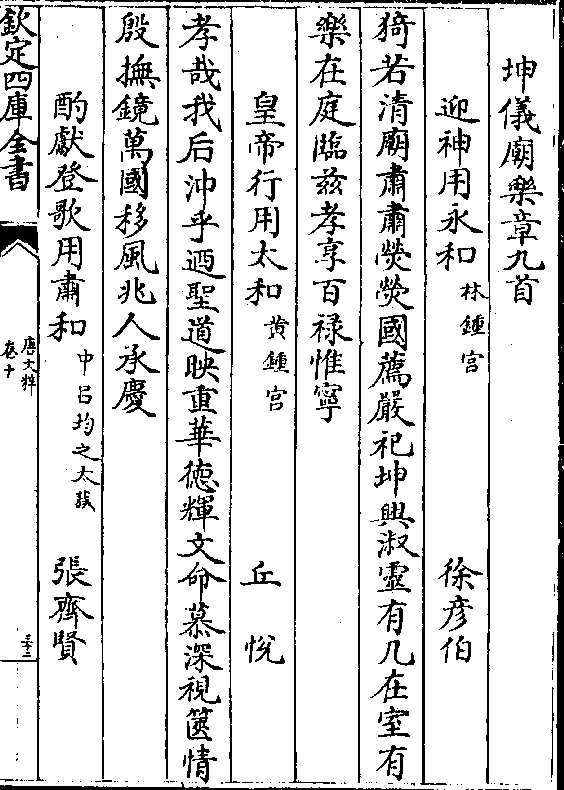 坤儀廟樂章九首
迎神用永和 林鍾宫 徐彦伯
猗若清廟肅肅熒熒國薦嚴祀坤興淑靈有几在室有
樂在庭臨兹孝享百禄惟寧
皇帝行用太和 黄鍾宫 丘悦
孝哉我后沖乎迺聖道映重華德輝文命慕深視篋情
殷撫鏡萬國移風兆人承慶
酌獻登歌用肅和 中吕均之太蔟 張齊賢
欽定四庫全書
唐文粹
卷十
三十二